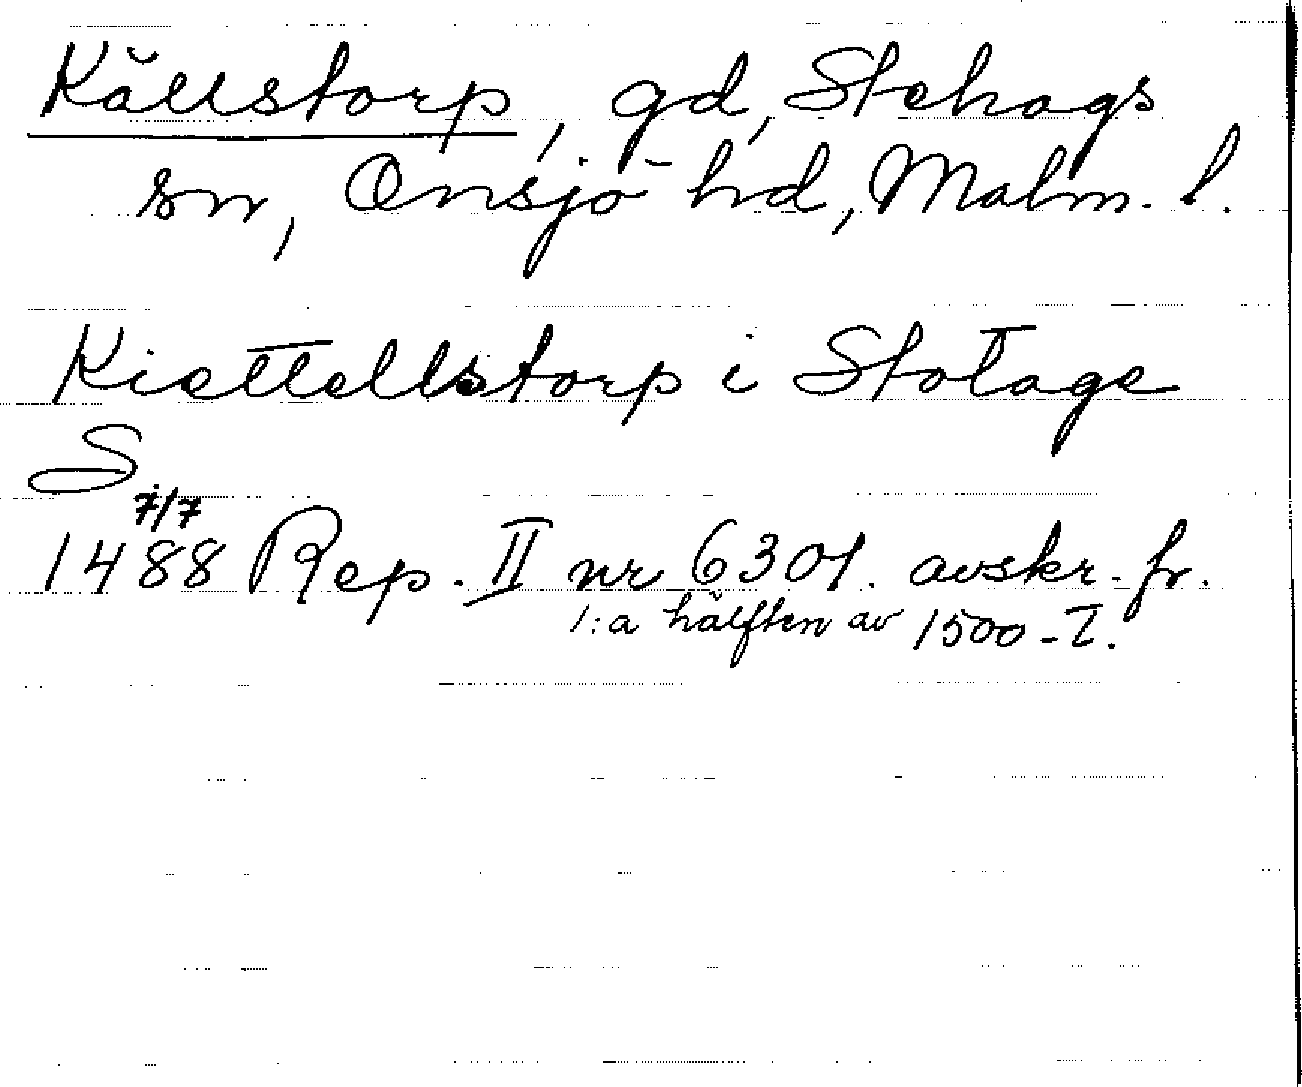 Källstorp, gd, Stehags
sn, Onsjö hd, Malm. l.
Kiettellstorp i Stotage
S
7/7
1488 Rep. II nr 6301. avskr. fr.
1:a hälften av 1500-T.